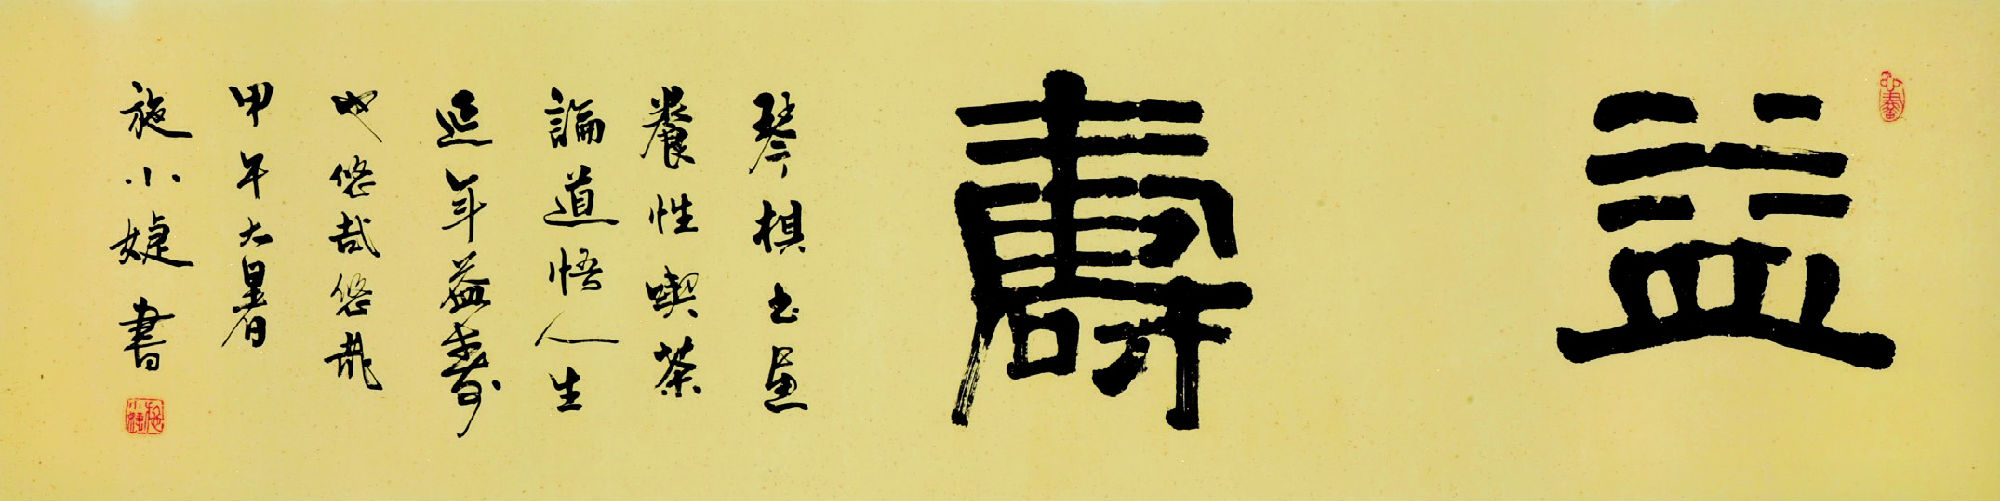 益壽
琴棋书畫
養性喫茶
論道悟人生
延年益壽
也悠哉悠哉
甲午大暑
施小婕書